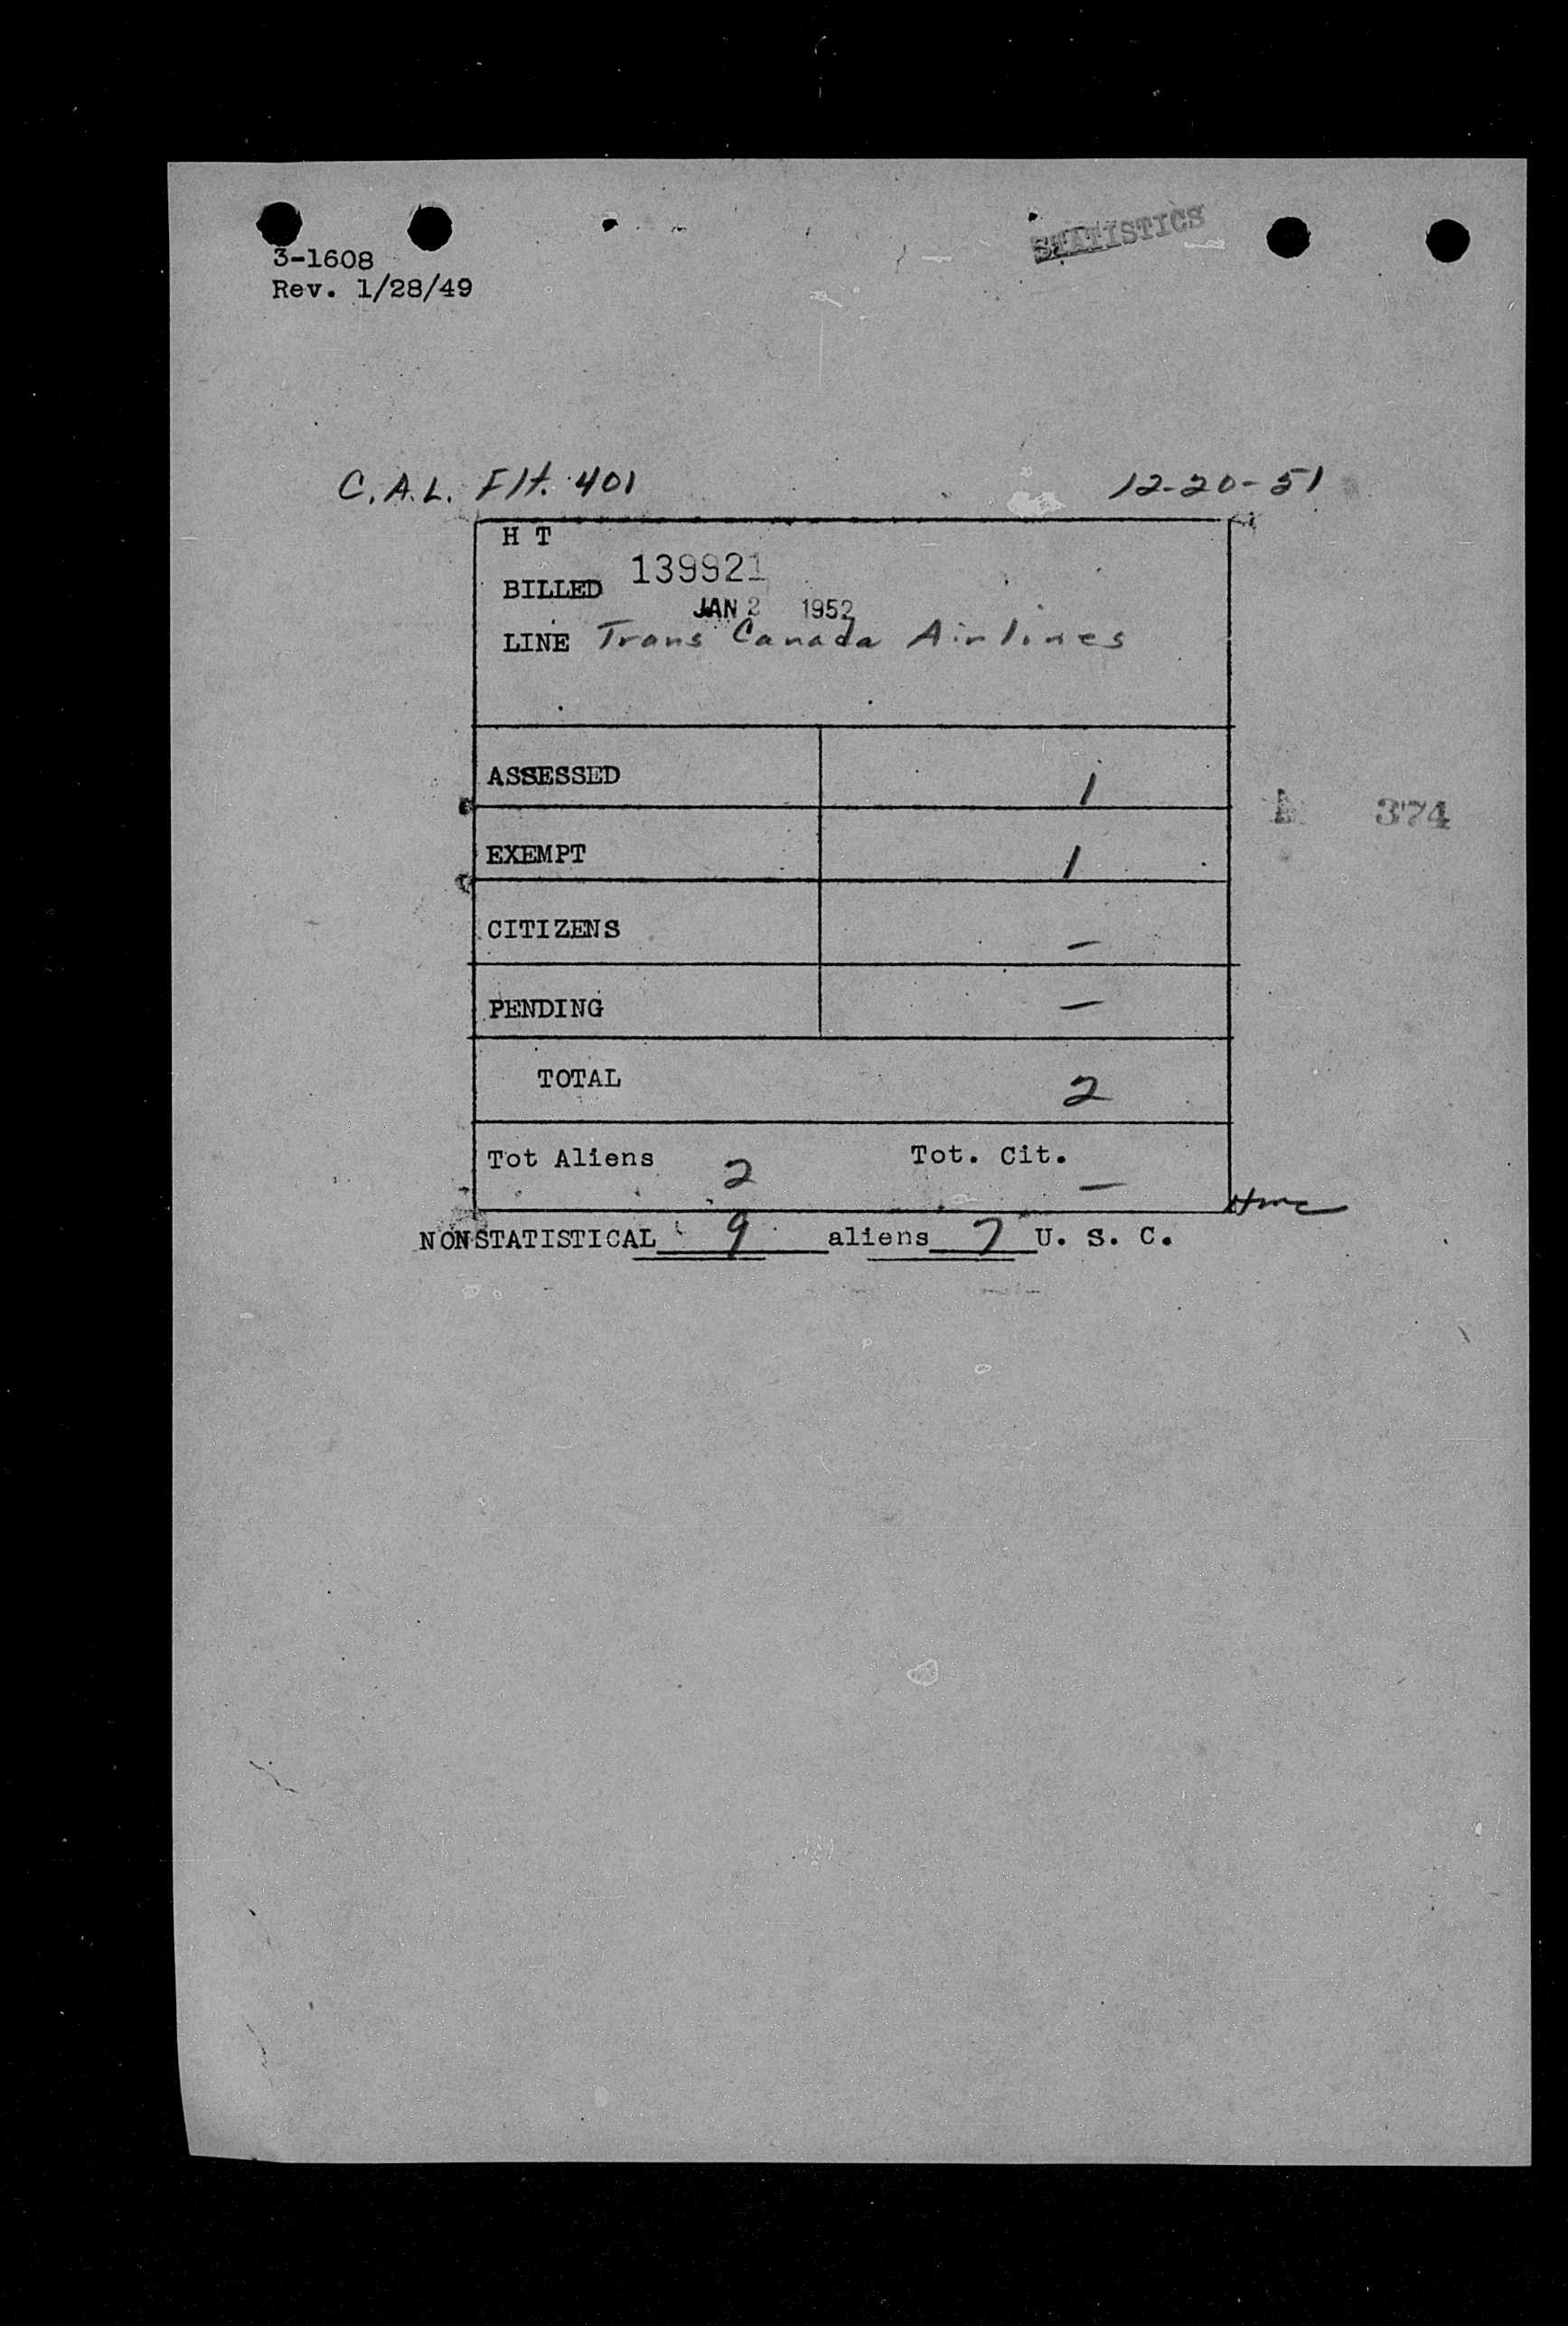 STATISTICS
3-1608
Rev. 1/28/49
C.A.L. Flt. 401 12-20-51
H T
BILLED 139921
JAN 2 1952
LINE Trans Canada Airlines
ASSESSED 1
374
EXEMPT 1
CITIZENS –
PENDING –
TOTAL 2
Tot Aliens 2 Tot. Cit. –
NONSTATISTICAL 9 aliens 7 U. S. C.